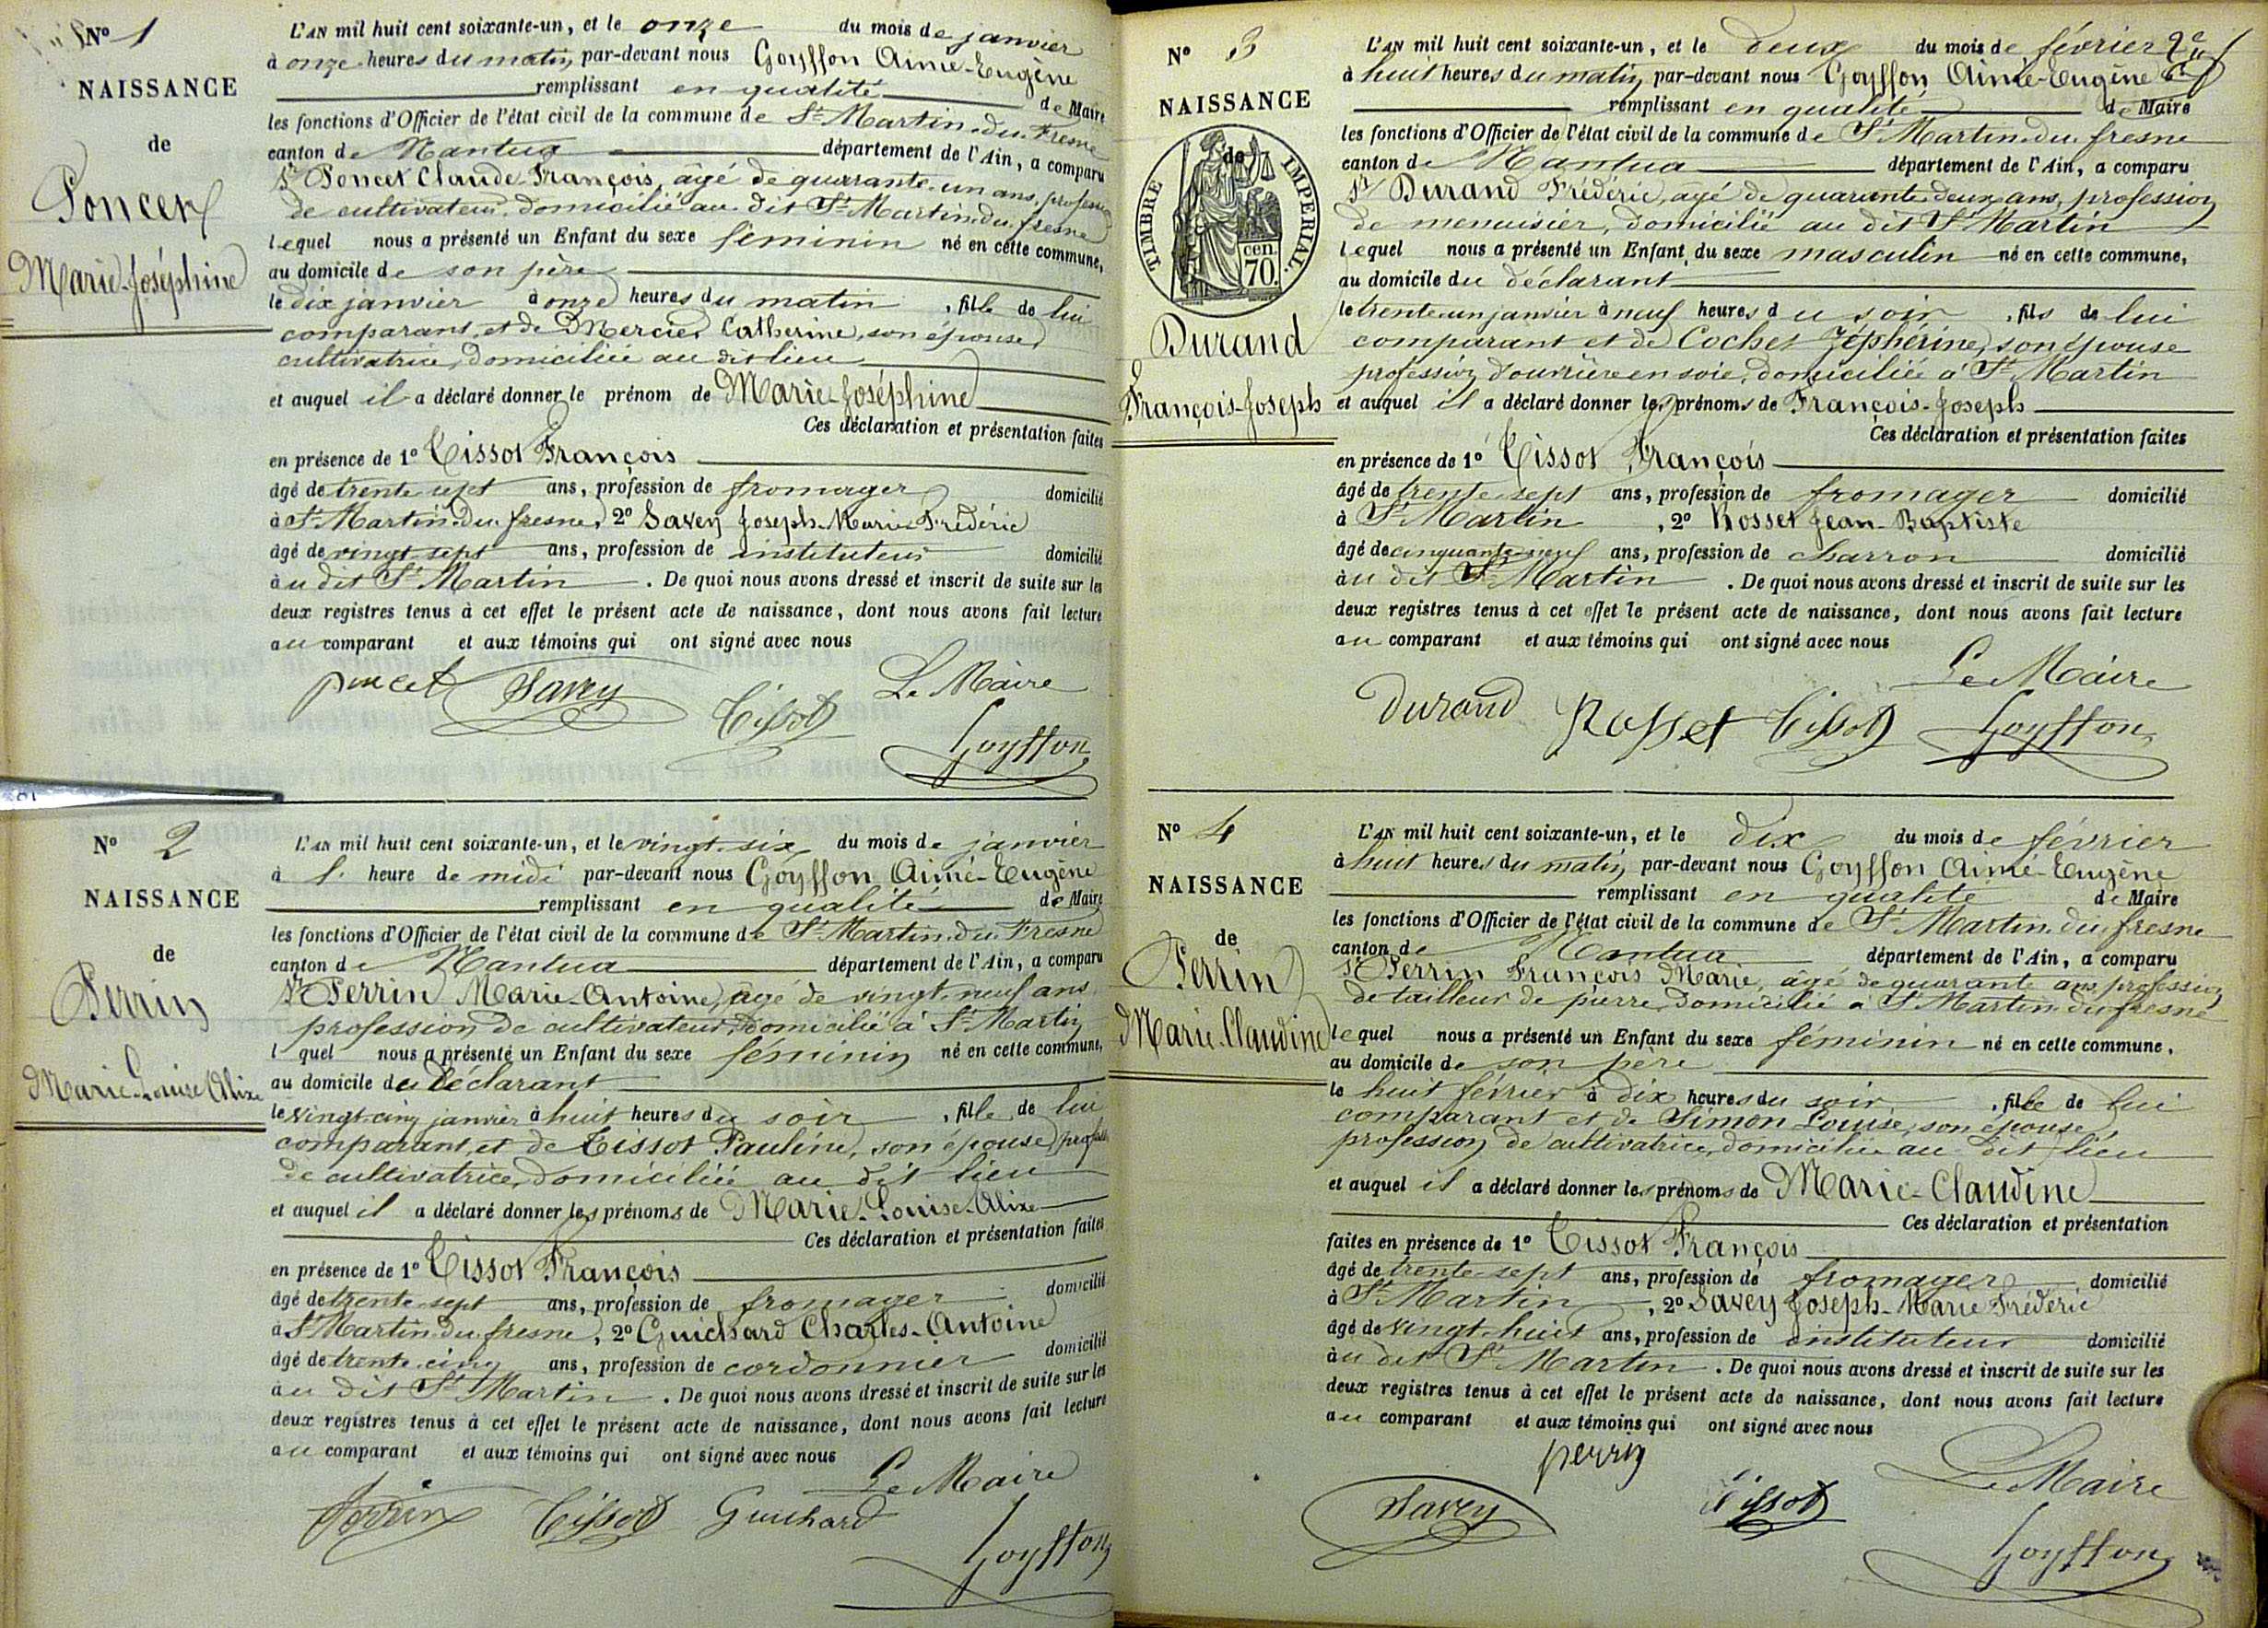 N° 1
NAISSANCE
de
Poncet
Marie-Joséphine
L'AN mil huit cent soixante-un, et le onze du mois de janvier
à onze heures du matin, par-devant nous Goyffon Aimé-Eugène
remplissant en qualité de Maire
les fonctions d'Officier de l'état civil de la commune de St Martin-du-Fresne
canton de Nantua département de l'Ain, a comparu
Sr Poncet Claude-François, âgé de quarante-un ans, profession
de cultivateur, domicilié au dit St Martin-du-fresne
lequel nous a présenté un Enfant du sexe féminin né en cette commune,
au domicile de son père
le dix janvier à onze heures du matin, fille de lui
comparant, et de Mercier Catherine, son épouse,
cultivatrice, domiciliée au dit lieu
et auquel il a déclaré donner le prénom de Marie-Joséphine
Ces déclaration et présentation faites
en présence de 1° Tissot François
âgé de trente-sept ans, profession de fromager domicilié
à St Martin-du-fresne, 2° Savey Joseph-Marie-Frédéric
âgé de vingt-sept ans, profession de instituteur domicilié
au dit St Martin. De quoi nous avons dressé et inscrit de suite sur les
deux registres tenus à cet effet le présent acte de naissance, dont nous avons fait lecture
au comparant et aux témoins qui ont signé avec nous
Le Maire
poncet Savey Tissot
Goyffon
N° 2
NAISSANCE
de
Perrin
Marie-Louise-Alixe
L'AN mil huit cent soixante-un, et le vingt-six du mois de janvier
à l' heure de midi par-devant nous Goyffon Aimé-Eugène
remplissant en qualité de Maire
les fonctions d'Officier de l'état civil de la commune de St Martin-du-Fresne
canton de Nantua département de l'Ain, a comparu
Sr Perrin Marie-Antoine, âgé de vingt-neuf ans,
profession de cultivateur, domicilié à St Martin
l quel nous a présenté un Enfant du sexe féminin né en cette commune,
au domicile du déclarant
le vingt-cinq janvier à huit heures du soir, fille de lui
comparant, et de Tissot Pauline, son épouse, profession
de cultivatrice, domiciliée au dit lieu
et auquel il a déclaré donner les prénoms de Marie-Louise-Alixe
Ces déclaration et présentation faites
en présence de 1° Tissot François
âgé de trente-sept ans, profession de fromager domicilié
à St Martin-du-fresne, 2° Guichard Charles-Antoine
âgé de trente-cinq ans, profession de cordonnier domicilié
au dit St Martin. De quoi nous avons dressé et inscrit de suite sur les
deux registres tenus à cet effet le présent acte de naissance, dont nous avons fait lecture
au comparant et aux témoins qui ont signé avec nous
Le Maire
Perrin Tissot Guichard
Goyffon
N° 3
NAISSANCE
de
TIMBRE IMPERIAL.
70 cen.
Durand
François-Joseph
L'AN mil huit cent soixante-un, et le deux du mois de février
à huit heures du matin, par-devant nous Goyffon Aimé-Eugène
remplissant en qualité de Maire
les fonctions d'Officier de l'état civil de la commune de St Martin-du-fresne
canton de Nantua département de l'Ain, a comparu
Sr Durand Frédéric, âgé de quarante-deux ans, profession
de menuisier, domicilié au dit St Martin
lequel nous a présenté un Enfant du sexe masculin né en cette commune,
au domicile du déclarant
le trente-un janvier à neuf heures du soir, fils de lui
comparant et de Cochet Zéphérine, son épouse
profession d'ouvrière en soie, domiciliée à St Martin
et auquel il a déclaré donner les prénoms de François-Joseph
Ces déclaration et présentation faites
en présence de 1° Tissot François
âgé de trente-sept ans, profession de fromager domicilié
à St Martin, 2° Rosset Jean-Baptiste
âgé de cinquante-neuf ans, profession de charron domicilié
au dit St Martin. De quoi nous avons dressé et inscrit de suite sur les
deux registres tenus à cet effet le présent acte de naissance, dont nous avons fait lecture
au comparant et aux témoins qui ont signé avec nous
Le Maire
Durand Rosset Tissot Goyffon
N° 4
NAISSANCE
de
Perrin
Marie-Claudine
L'AN mil huit cent soixante-un, et le dix du mois de février
à huit heures du matin, par-devant nous Goyffon Aimé-Eugène
remplissant en qualité de Maire
les fonctions d'Officier de l'état civil de la commune de St Martin-du-fresne
canton de Nantua département de l'Ain, a comparu
Sr Perrin François Marie, âgé de quarante ans, profession
de tailleur de pierre, domicilié à St Martin-du-fresne
lequel nous a présenté un Enfant du sexe féminin né en cette commune,
au domicile de son père
le huit février à dix heures du soir, fille de lui
comparant et de Simon Louise, son épouse,
profession de cultivatrice, domiciliée au dit lieu
et auquel il a déclaré donner les prénoms de Marie-Claudine
Ces déclaration et présentation
faites en présence de 1° Tissot François
âgé de trente-sept ans, profession de fromager domicilié
à St Martin, 2° Savey Joseph-Marie Frédéric
âgé de vingt-huit ans, profession de instituteur domicilié
au dit St Martin. De quoi nous avons dressé et inscrit de suite sur les
deux registres tenus à cet effet le présent acte de naissance, dont nous avons fait lecture
au comparant et aux témoins qui ont signé avec nous
perrin
Le Maire
Savey Tissot
Goyffon